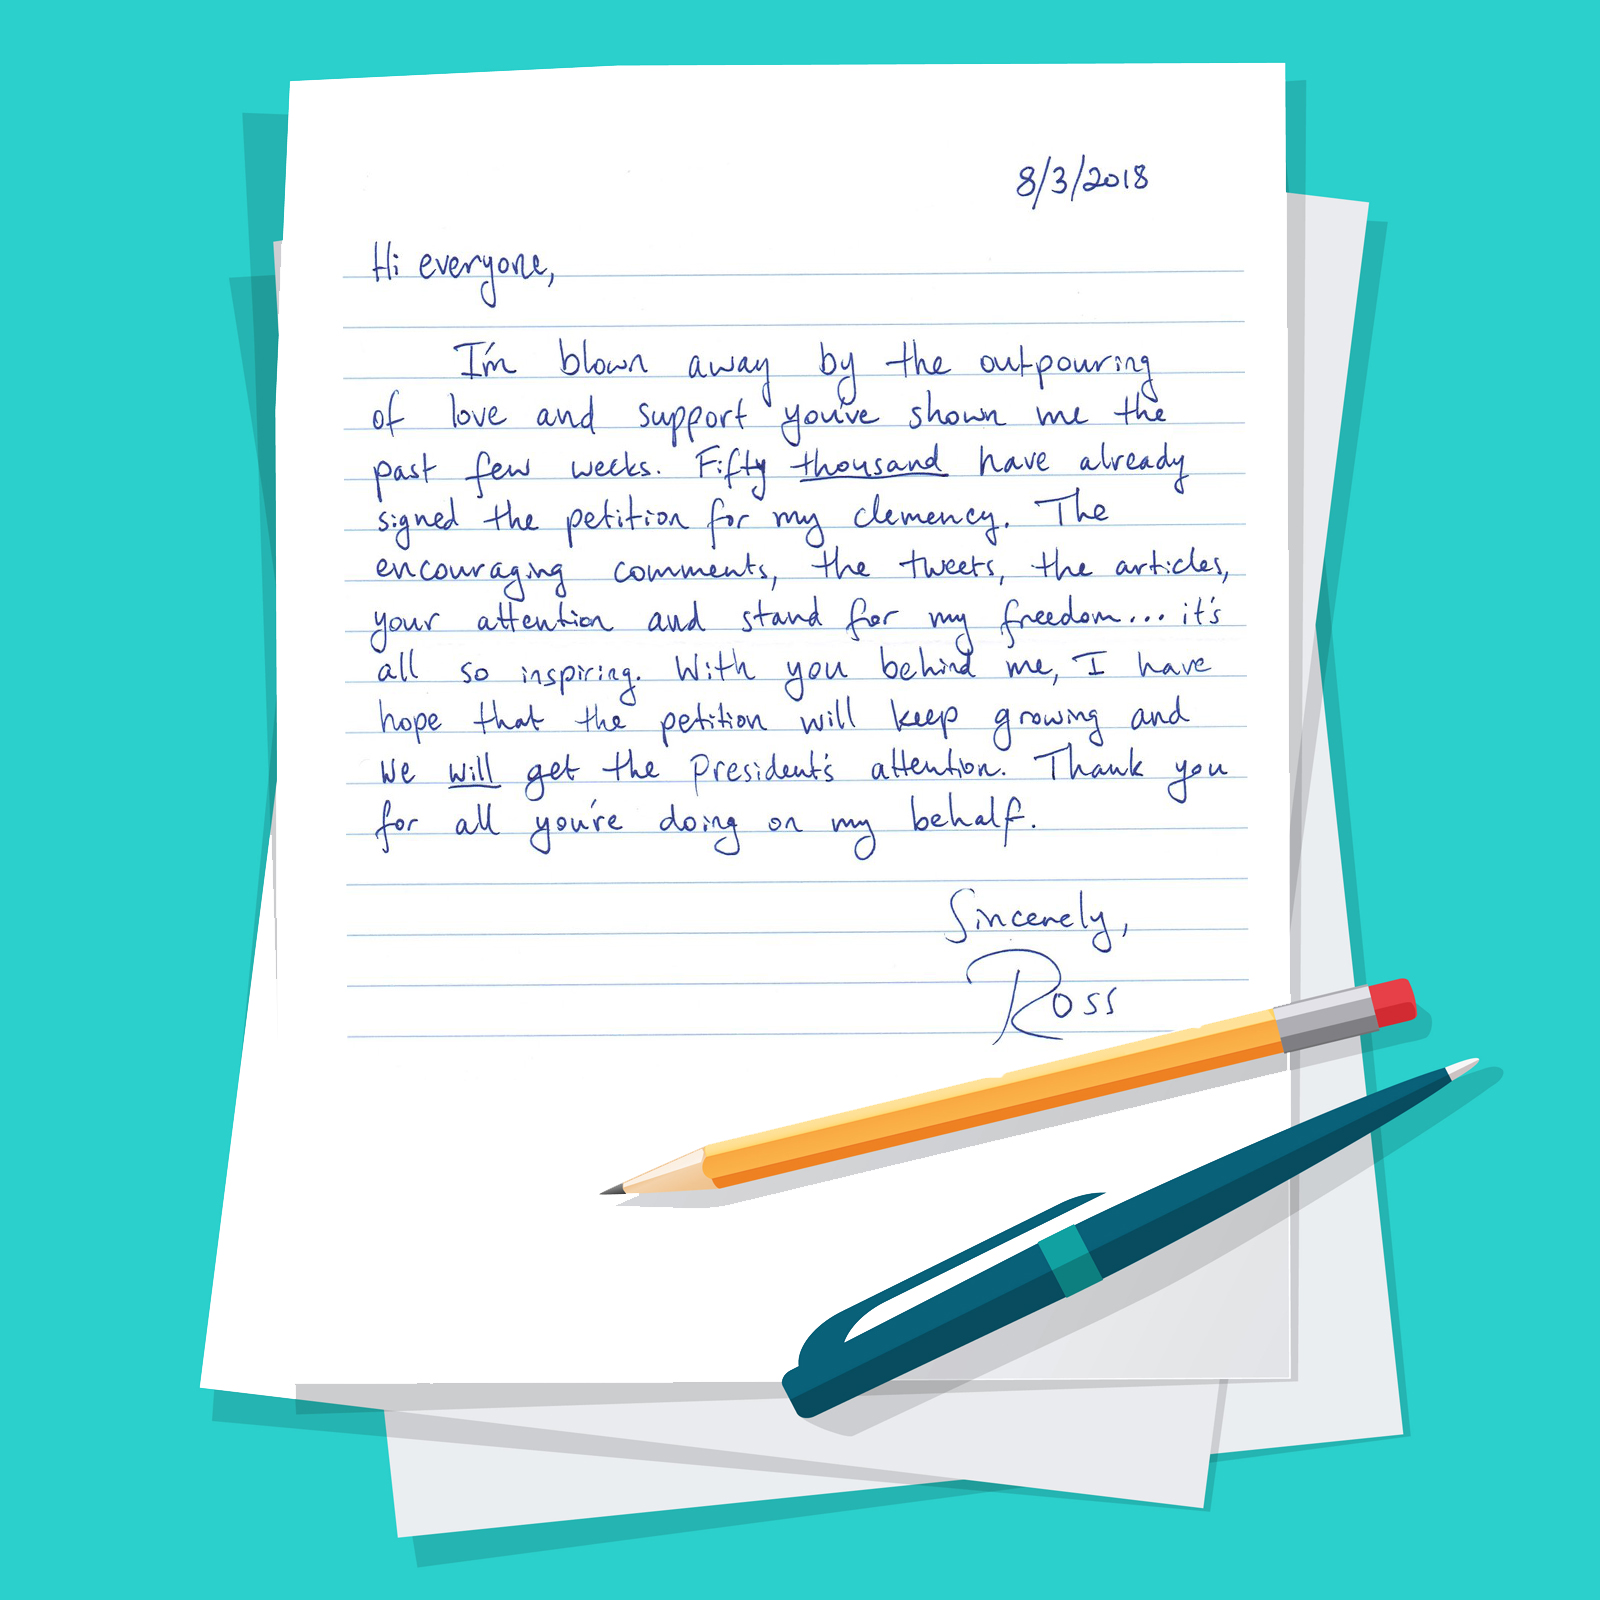 8/3/2018
Hi everyone,
I'm blown away by the outpouring
of love and support you've shown me the
past few weeks. Fifty thousand have already
signed the petition for my clemency. The
encouraging comments, the tweets, the articles,
your attention and stand for my freedom... it's
all so inspiring. With you behind me, I have
hope that the petition will keep growing and
we will get the President's attention. Thank you
for all you're doing on my behalf.
Sincerely,
Ross